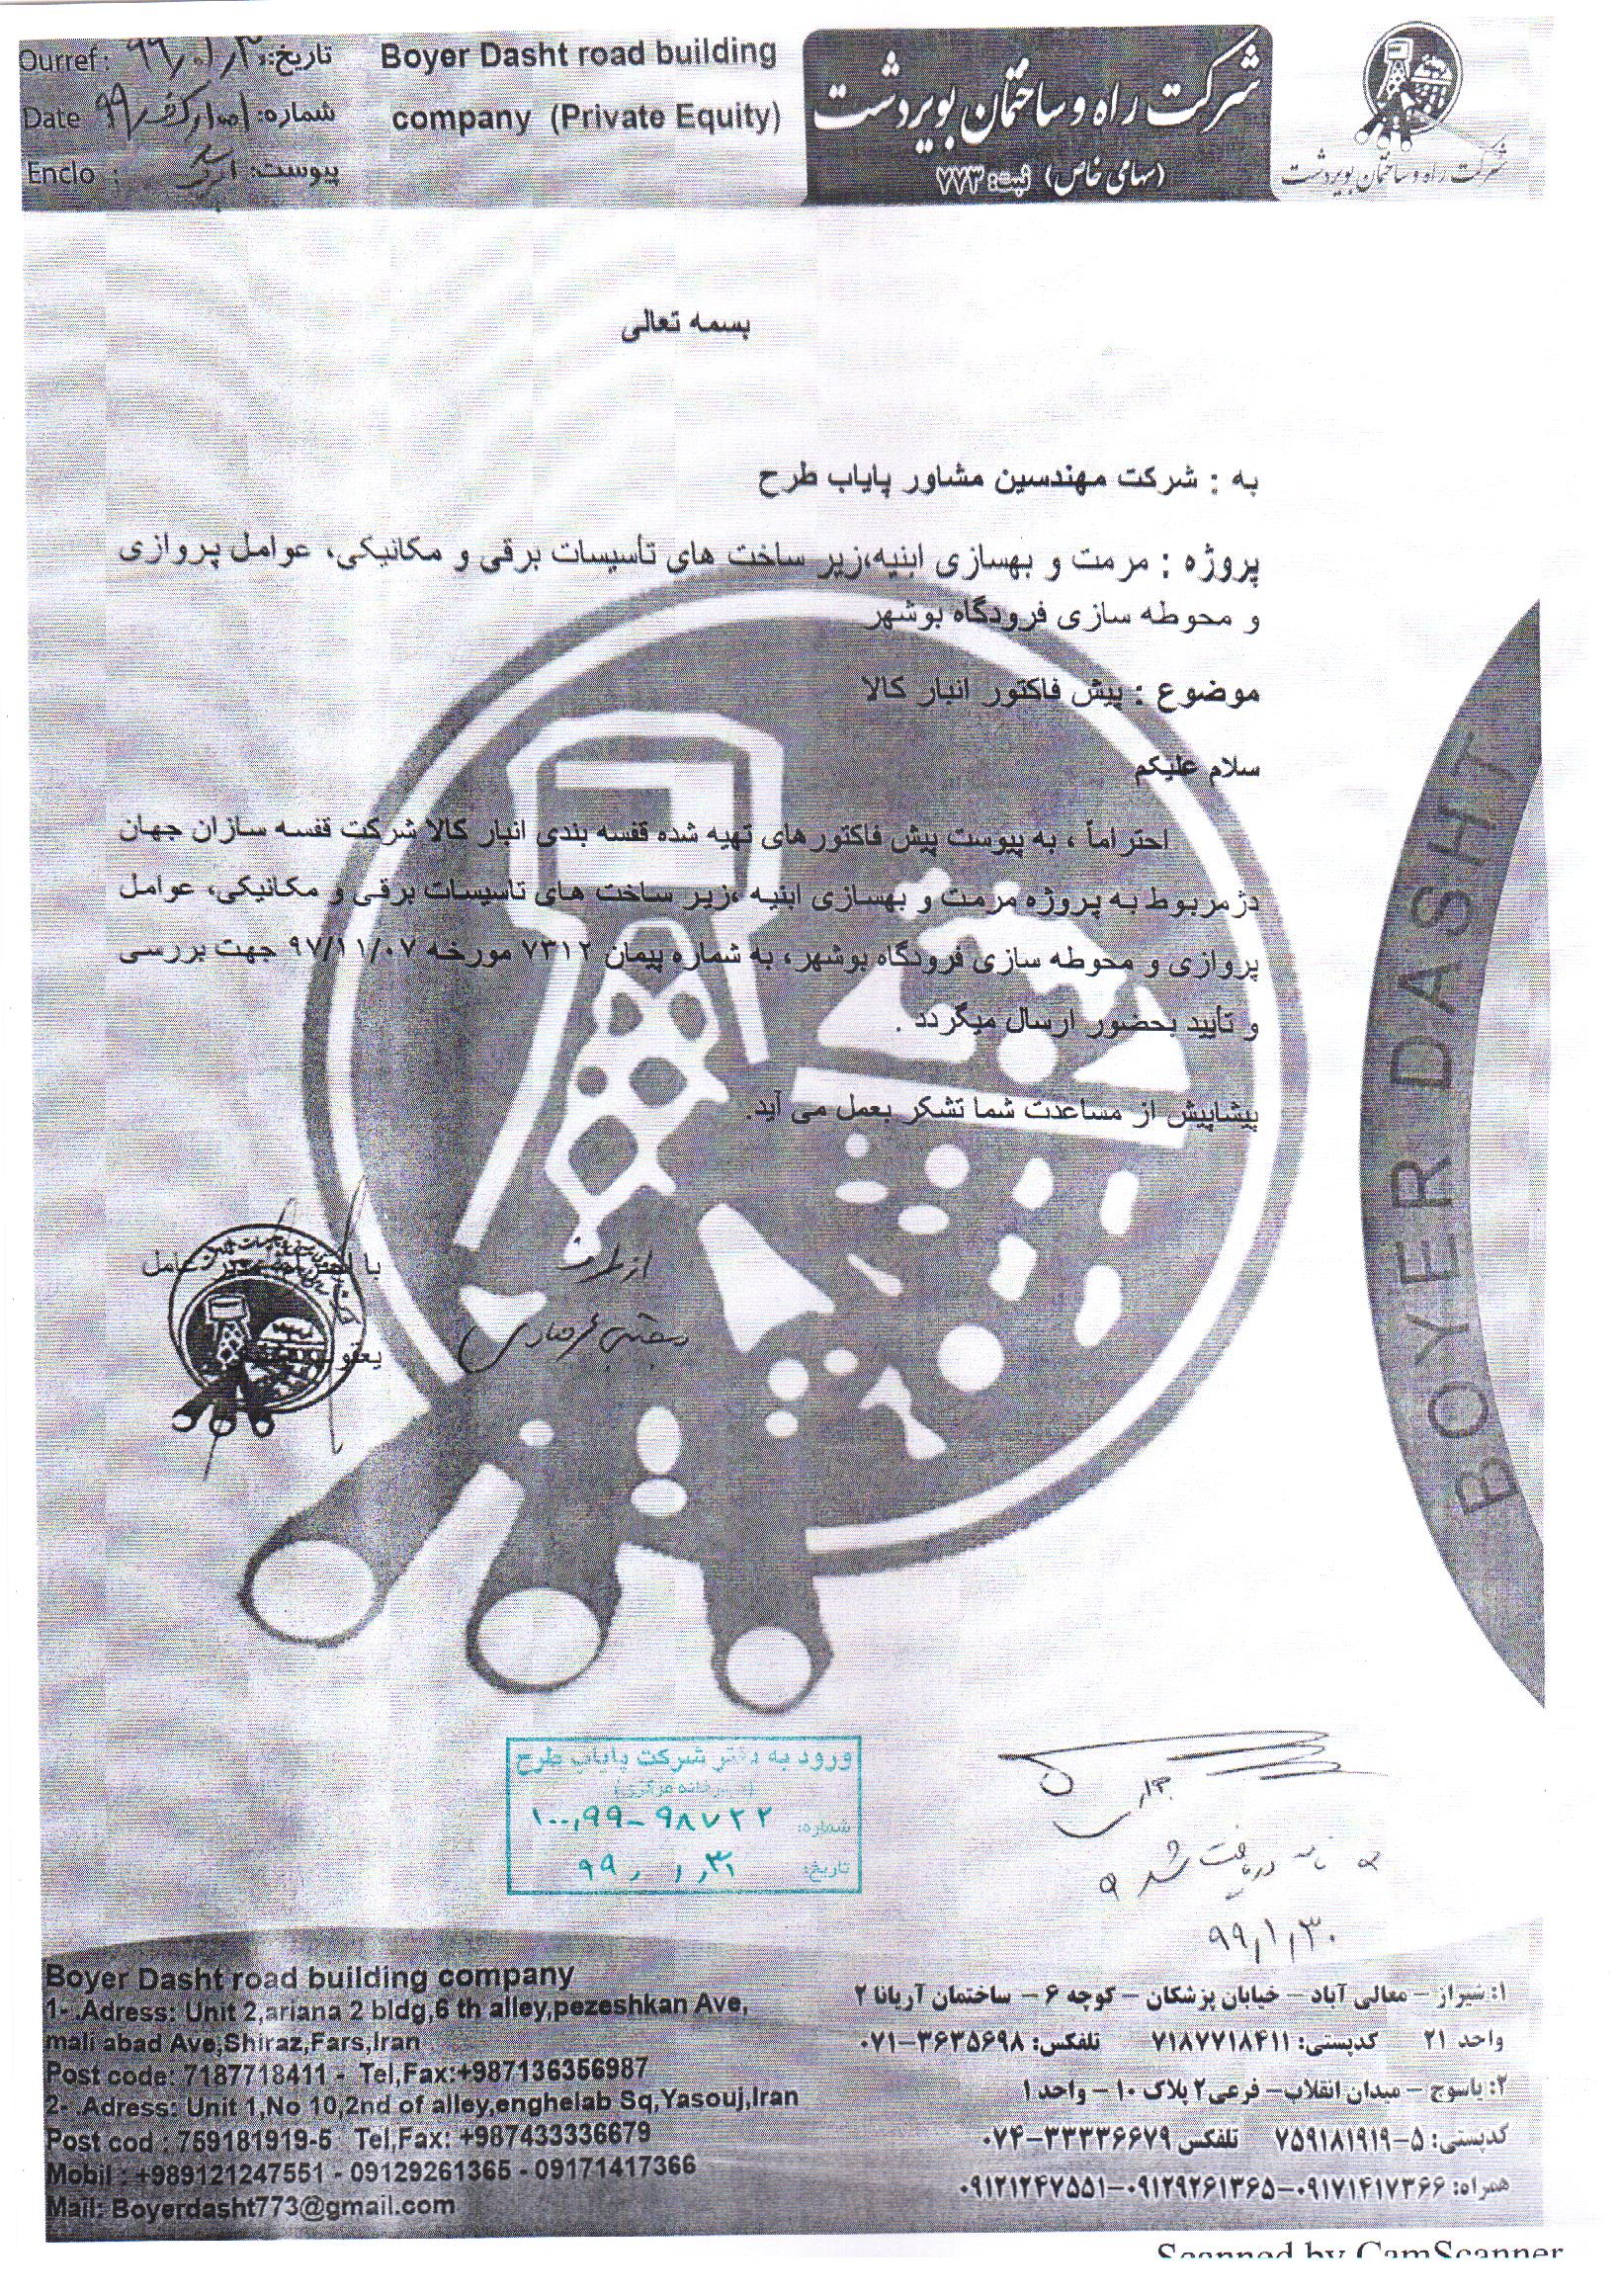 Ourref :
تاریخ: ۹۹/۰۱/۳۰
Date
شماره:
۹۹
Enclo :
پیوست:
Boyer Dasht road building
company (Private Equity)
شرکت راه و ساختمان بویردشت
(سهامی خاص) ثبت: ۷۷۳
شرکت راه و ساختمان بویردشت
بسمه تعالی
به : شرکت مهندسین مشاور پایاب طرح
پروژه : مرمت و بهسازی ابنیه،زیر ساخت های تأسیسات برقی و مکانیکی، عوامل پروازی
و محوطه سازی فرودگاه بوشهر
موضوع : پیش فاکتور انبار کالا
سلام علیکم
احتراماً ، به پیوست پیش فاکتورهای تهیه شده قفسه بندی انبار کالا شرکت قفسه سازان جهان
دژمربوط به پروژه مرمت و بهسازی ابنیه ،زیر ساخت های تاسیسات برقی و مکانیکی، عوامل
پروازی و محوطه سازی فرودگاه بوشهر، به شماره پیمان ۷۳۱۲ مورخه ۹۷/۱۱/۰۷ جهت بررسی
و تأیید بحضور ارسال میگردد .
پیشاپیش از مساعدت شما تشکر بعمل می آید.
از طرف
عامل
BOYER DASHT
ورود به دفتر شرکت پایاب طرح
(دبیرخانه مرکزی)
شماره: ۱۰۰,۹۹-۹۸۷۲۲
تاریخ: ۹۹/۱/۳۱
نامه دریافت شد
۹۹/۱/۳۰
Boyer Dasht road building company
1- .Adress: Unit 2,ariana 2 bldg,6 th alley,pezeshkan Ave,
mali abad Ave,Shiraz,Fars,Iran
Post code: 7187718411 - Tel,Fax:+987136356987
2- .Adress: Unit 1,No 10,2nd of alley,enghelab Sq,Yasouj,Iran
Post cod : 759181919-5 Tel,Fax: +987433336679
Mobil : +989121247551 - 09129261365 - 09171417366
Mail: Boyerdasht773@gmail.com
۱: شیراز – معالی آباد – خیابان پزشکان – کوچه ۶ – ساختمان آریانا ۲
واحد ۲۱ کدپستی: ۷۱۸۷۷۱۸۴۱۱ تلفکس: ۳۶۳۵۶۹۸-۰۷۱
۲: یاسوج – میدان انقلاب– فرعی۲ پلاک ۱۰ – واحد ۱
کدپستی: ۵-۷۵۹۱۸۱۹۱۹ تلفکس ۳۳۳۳۶۶۷۹-۰۷۴
همراه: ۰۹۱۷۱۴۱۷۳۶۶-۰۹۱۲۹۲۶۱۳۶۵-۰۹۱۲۱۲۴۷۵۵۱
Scanned by CamScanner